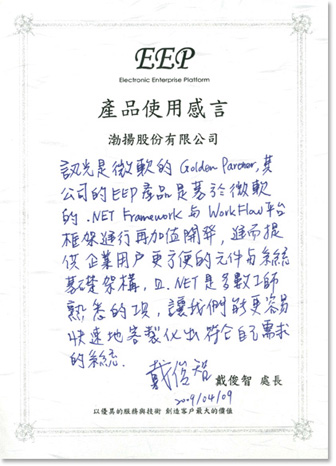 EEP
Electronic Enterprise Platform
產品使用感言
渤揚股份有限公司
訊光是微軟的 Golden Partner,其
公司的EEP產品是基於微軟
的 .NET Framework 与 WorkFlow平台
框架進行再加值開發,進而提
供企業用戶更方便的元件与系統
基礎架構,且.NET是多數工師
熟悉的項,讓我們能更容易
快速地客製化出符合自己需求
的系統.
戴俊智
戴俊智 處長
2009/04/09
以優異的服務與技術 創造客戶最大的價值